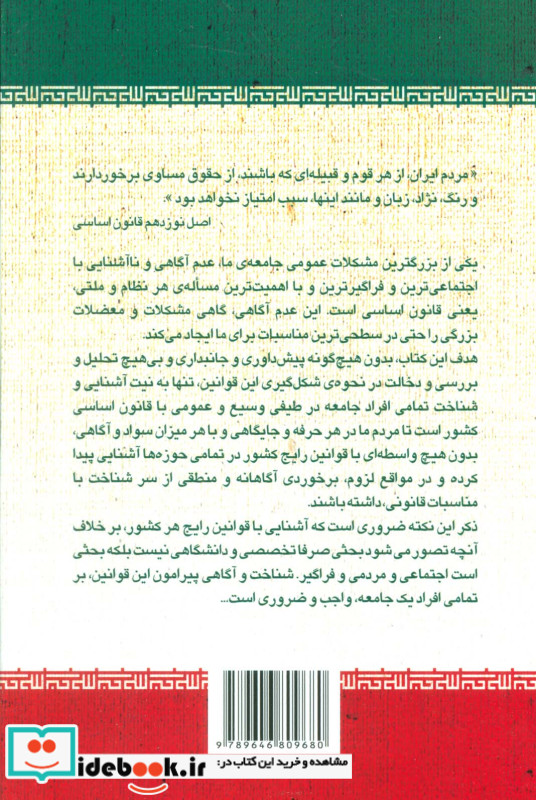 « مردم ایران، از هر قوم و قبیله‌ای که باشند، از حقوق مساوی برخوردارند
و رنگ، نژاد، زبان و مانند اینها، سبب امتیاز نخواهد بود ».
اصل نوزدهم قانون اساسی
یکی از بزرگترین مشکلات عمومی جامعه‌ی ما، عدم آگاهی و ناآشنایی با
اجتماعی‌ترین و فراگیرترین و با اهمیت‌ترین مسأله‌ی هر نظام و ملتی،
یعنی قانون اساسی است. این عدم آگاهی، گاهی مشکلات و معضلات
بزرگی را حتی در سطحی‌ترین مناسبات برای ما ایجاد می‌کند.
هدف این کتاب، بدون هیچ‌گونه پیش‌داوری و جانبداری و بی‌هیچ تحلیل و
بررسی و دخالت در نحوه‌ی شکل‌گیری این قوانین، تنها به نیت آشنایی و
شناخت تمامی افراد جامعه در طیفی وسیع و عمومی با قانون اساسی
کشور است تا مردم ما در هر حرفه و جایگاهی و با هر میزان سواد و آگاهی،
بدون هیچ واسطه‌ای با قوانین رایج کشور در تمامی حوزه‌ها آشنایی پیدا
کرده و در مواقع لزوم، برخوردی آگاهانه و منطقی از سر شناخت با
مناسبات قانونی، داشته باشند.
ذکر این نکته ضروری است که آشنایی با قوانین رایج هر کشور، بر خلاف
آنچه تصور می شود بحثی صرفا تخصصی و دانشگاهی نیست بلکه بحثی
است اجتماعی و مردمی و فراگیر. شناخت و آگاهی پیرامون این قوانین، بر
تمامی افراد یک جامعه، واجب و ضروری است...
9 789646 809680
مشاهده و خرید این کتاب در:
idebook.ir